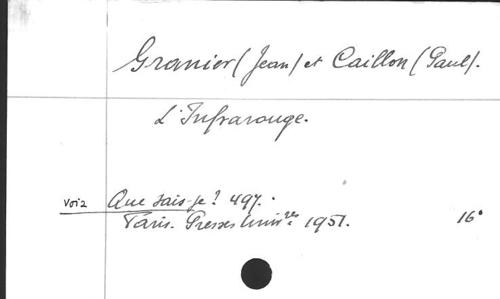 Granier (Jean) et Caillon (Paul).
L'Infrarouge.
voir Que sais-je? 497.
Paris. Presses Univ.res 1951. 16°